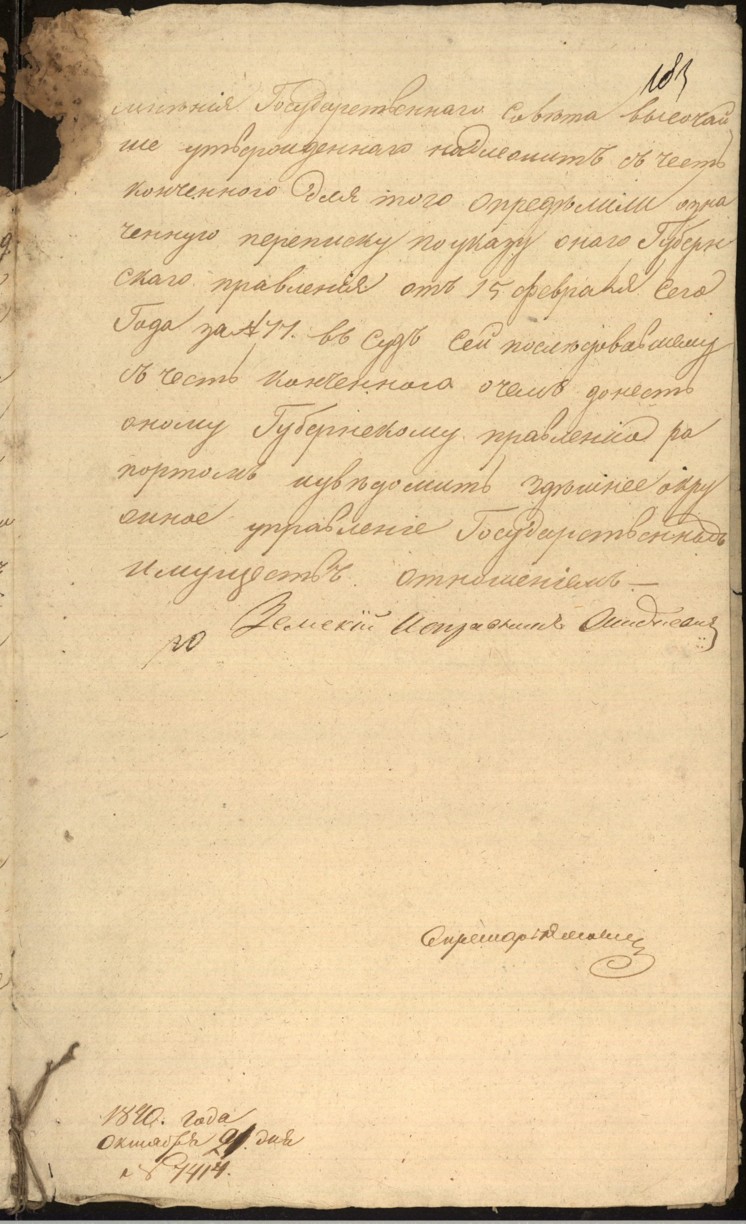 183
мнѣнія Государственнаго Совѣта высочай
ше утвержденнаго надлежитъ съ честь
конченного для того опредѣлили озна
ченную переписку по указу онаго Губерн
скаго правленія отъ 15 февраля сего
Года за № 77. въ судъ сей последовавшему
съ честь конченного о чемъ донесть
оному Губернскому правленію ра
портомъ и увѣдомить здѣшнее окру
жное управленіе Государственныхъ
имуществъ отношеніемъ —
Земскій Исправникъ
Секретарь
1840. года
Октября 21. дня
№ 7414.